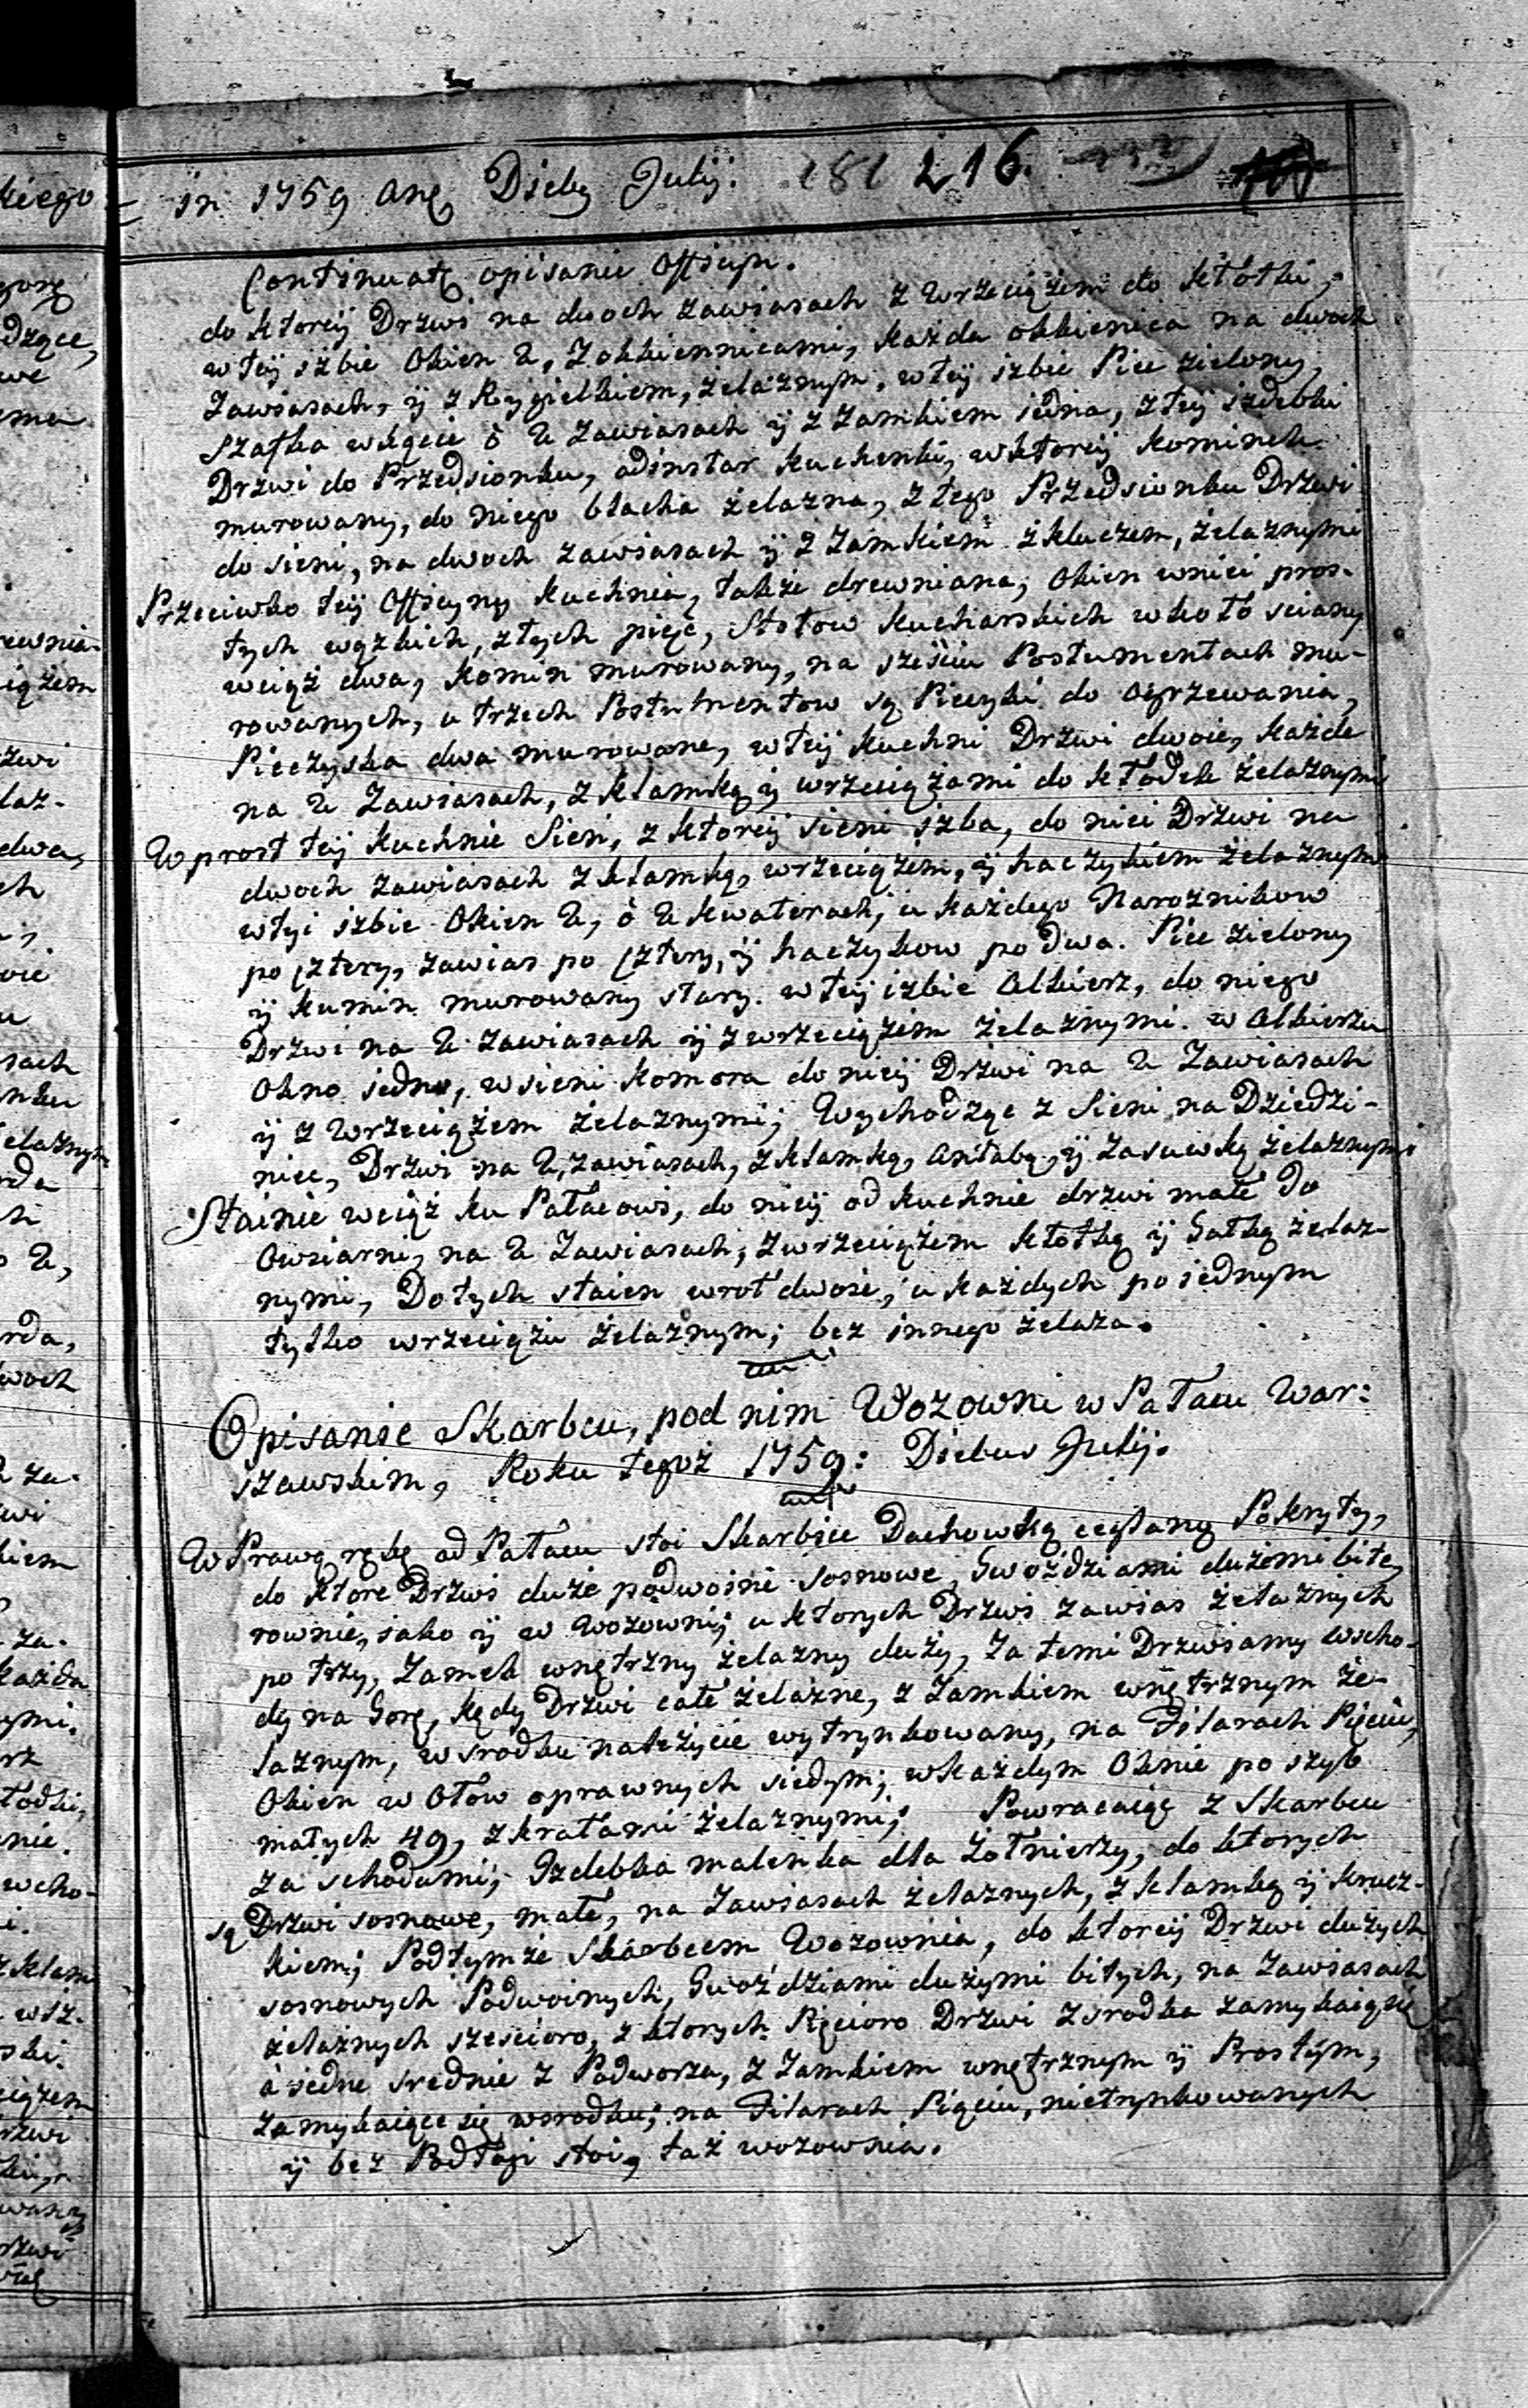 in 1759 Anõ Dieby Julij. 181 216.
Continuatõ opisanie Officyn.
do ktoreÿ Drzwi na dwoch zawiasach z wrzeciążem do kłótki;
w teÿ izbie Okien 2, z okkiennicami, każda okkienica na dwoch
zawiasach, ÿ z Rygielkiem, żelaznym, w teÿ izbie Piec zielony,
szafka w kącie ò 2 zawiasach ÿ z zamkiem jedna, z teÿ izdebki
Drzwi do Przedsionku, adinstar kuchenki, w ktoreÿ kominek
murowany, do niego blacha żelazna, z tego Przedsionku Drzwi
do sieni, na dwoch zawiasach ÿ z zamkiem z kluczem, żelaznymi
Przeciwko teÿ Officyny kuchnia, także drewniana, Okien w niei pros-
tych wązkich, złych pięć, Stołow kucharskich w koło sciany
wciąż dwa, komin murowany, na sześciu Postumentach mu-
rowanych, u trzech Postumentow są Piecyki do ogrzewania,
Pieczyska dwa murowane, w teÿ kuchni Drzwi dwoie, każde
na 2 zawiasach, z klamką ÿ wrzeciążami do kłódek żelaznymi
Wprost teÿ kuchnie Sień, z ktoreÿ sieni izba, do niei Drzwi na
dwoch zawiasach z klamką, wrzeciążem, ÿ haczykiem żelaznym
w tyi izbie Okien 2, ò 2 kwaterach, u każdego Naroznikow
po cztery, zawias po cztery, ÿ haczykow po dwa. Piec zielony
ÿ kumin murowany stary. w teÿ izbie Alkierz, do niego
Drzwi na 2 zawiasach ÿ z wrzeciążem żelaznymi. w Alkierzu
Okno jedno, w sieni komora do nieÿ Drzwi na 2 zawiasach
ÿ z wrzeciążem żelaznymi; Wychodząc z Sieni na Dziedzi-
niec, Drzwi na 2, zawiasach, z klamką, Antabą, ÿ zasuwką żelaznymi
Stainie wciąż ku Pałacowi, do nieÿ od kuchnie drzwi małe do
Owsiarni, na 2 zawiasach, z wrzeciążem kłotką ÿ Gałką żelaz-
nymi, Do tych staien wrot dwoie, u każdych po jednym
tylko wrzeciążu żelaznym; bez innego żelaza.
Opisanie Skarbcu, pod nim Wozowni w Pałacu War:
szawskim, Roku tegoż 1759: Diebus Julij.
W Prawą rękę od Pałacu stoi Skarbiec Dachowką ceglaną Pokryty,
do ktore Drzwi duże podwoine sosnowe, Gwoździami dużemi bite,
rownie, jako ÿ w Wozowni; u ktorych Drzwi zawias żelaznych
po trzy, zamek wnętrzny żelazny duży, za temi Drzwiamy wscho-
dy na Gorę, kędy Drzwi całe żelazne, z zamkiem wnętrznym że-
laznym, w srodku należycie wytrynkowany, na Filarach Pięciu,
Okien w Ołow oprawnych siedym; w każdym Oknie po szyb
małych 49, z kratami żelaznymi; Powracaiąc z Skarbcu
za schodami; Izdebka maleńka dla żołnierzy, do ktorych
są Drzwi sosnowe, małe, na zawiasach żelaznych, z klamką ÿ krucz-
kiem; Pod tymże Skarbcem Wozownia, do ktoreÿ Drzwi dużych
sosnowych Podwoinych, Gwoździami dużymi bitych, na zawiasach
żelaznych szescioro, z ktorych Pięcioro Drzwi z srodka zamykaią się
à jedne srednie z Podworza, z zamkiem wnętrznym ÿ Prostym,
zamykaiące się w srodku; na Filarach Pięciu, nietrynkowanych
ÿ bez Podłogi stoi, taż wozownia.